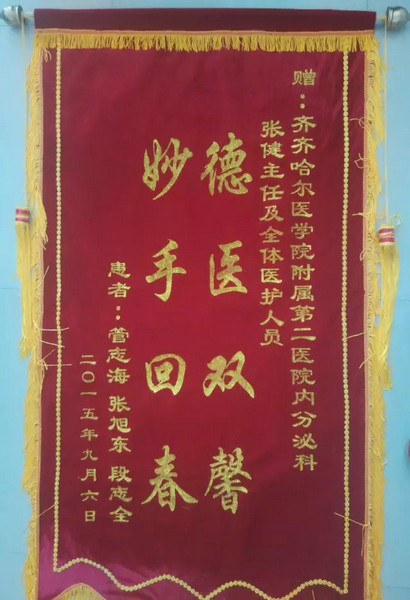 赠：齐齐哈尔医学院附属第二医院内分泌科
张健主任及全体医护人员
德医双馨
妙手回春
患者：管志海 张旭东 段志全
二〇一五年九月六日